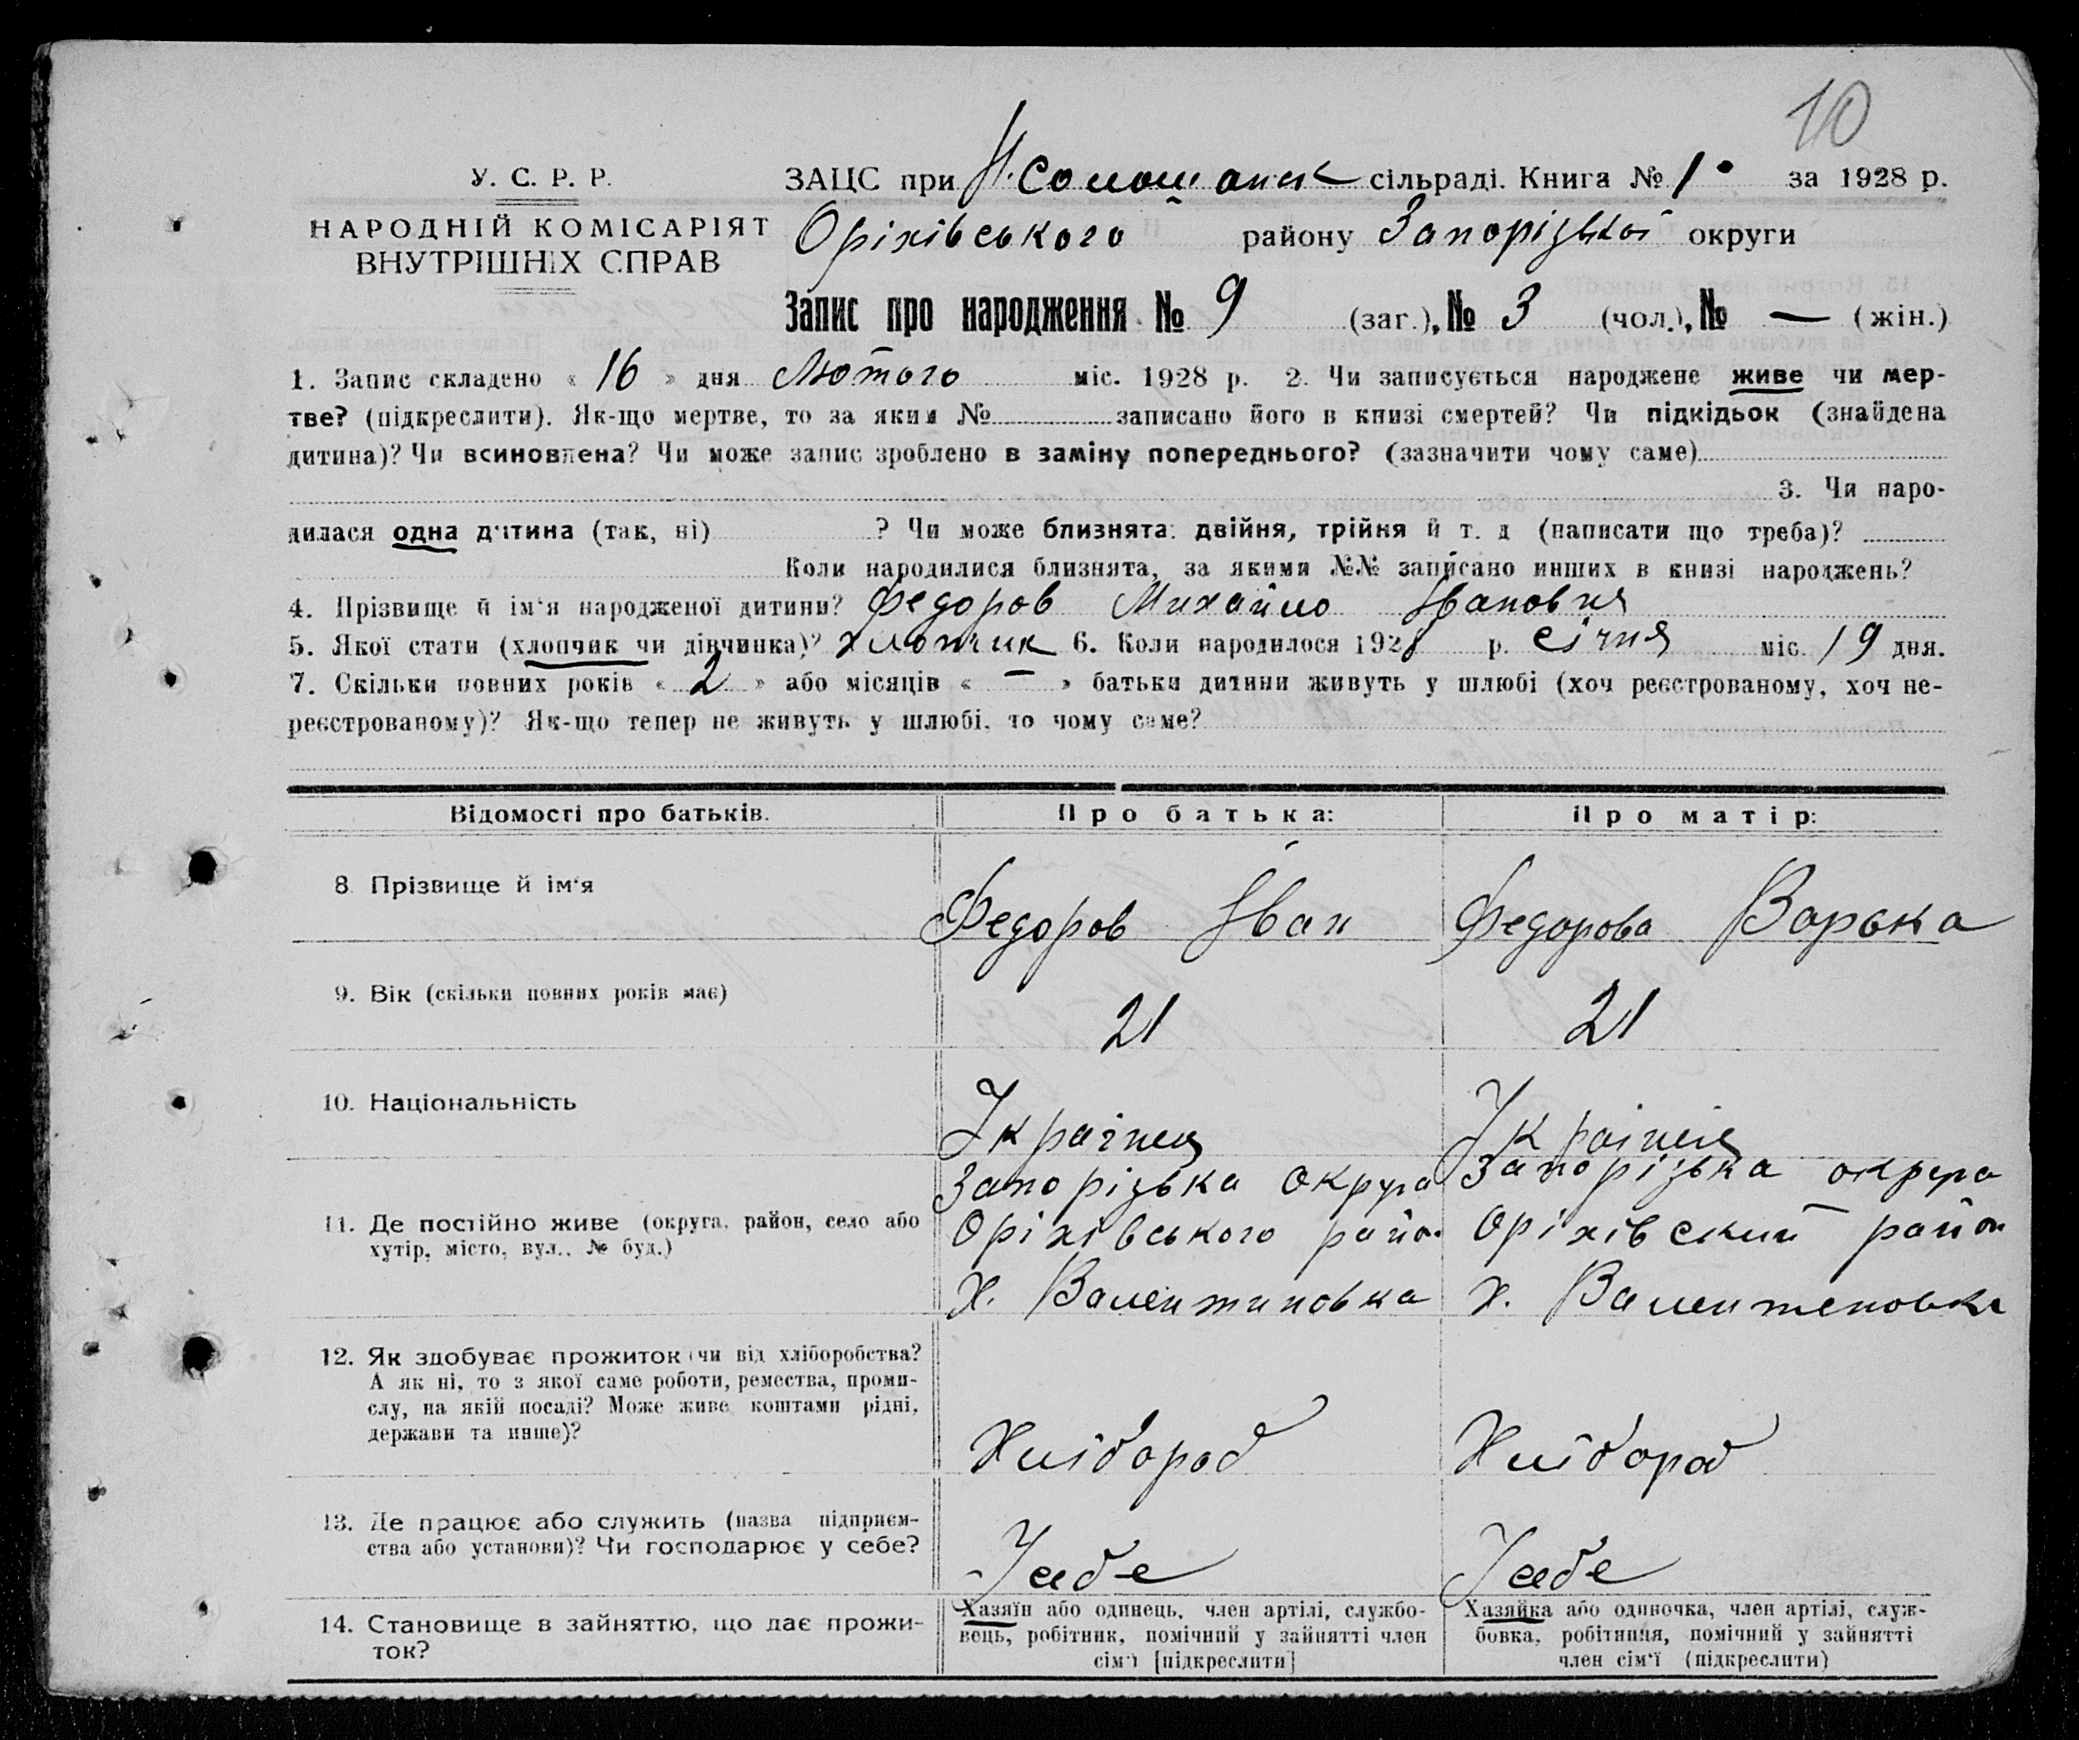 10
У. С. Р. Р.
НАРОДНІЙ КОМІСАРІЯТ
ВНУТРІШНІХ СПРАВ
ЗАЦС при сільраді. Книга № 1 за 1928 р.
Оріхівського району Запорізької округи
Запис про народження № 9 (заг.), № 3 (чол.), № — (жін.)
1. Запис складено « 16 » дня Лютого міс. 1928 р. 2. Чи записується народжене живе чи мер-
тве? (підкреслити). Як-що мертве, то за яким № записано його в книзі смертей? Чи підкідьок (знайдена
дитина)? Чи всиновлена? Чи може запис зроблено в заміну попереднього? (зазначити чому саме)
3. Чи наро-
дилася одна дитина (так, ні) ? Чи може близнята: двійня, трійня й т. д (написати що треба)?
Коли народилися близнята, за якими №№ записано инших в книзі народжень?
4. Прізвище й ім‘я народженої дитини? Федоров Михайло Івановия
5. Якої стати (хлопчик чи дівчинка)? хлопчик 6. Коли народилося 1928 р. січня міс. 19 дня.
7. Скільки повних років « 2 » або місяців « — » батьки дитини живуть у шлюбі (хоч реєстрованому, хоч не-
реєстрованому)? Як-що тепер не живуть у шлюбі, то чому саме?
Відомості про батьків. Про батька: Про матір:
8. Прізвище й ім‘я Федоров Іван Федорова Варька
9. Вік (скільки повних років має) 21 21
10. Національність Українец Україн
11. Де постійно живе (округа, район, село або
хутір, місто, вул., № буд.)
Запорізька округа
Оріхівського район
Х. Валентиновка
Запорізька округа
Оріхівский район
х. Валентеновка
12. Як здобуває прожиток (чи від хліборобства?
А як ні, то з якої саме роботи, ремества, проми-
слу, на якій посаді? Може живе коштами рідні,
держави та инше)?
Хлібороб Хлібороб
13. Де працює або служить (назва підприєм-
ства або установи)? Чи господарює у себе?
У себе У себе
14. Становище в зайняттю, що дає прожи-
ток?
Хазяїн або одинець, член артілі, службо-
вець, робітник, помічний у зайнятті член
сім‘ї [підкреслити]
Хазяйка або одиночка, член артілі, служ-
бовка, робітниця, помічний у зайнятті
член сім‘ї (підкреслити)